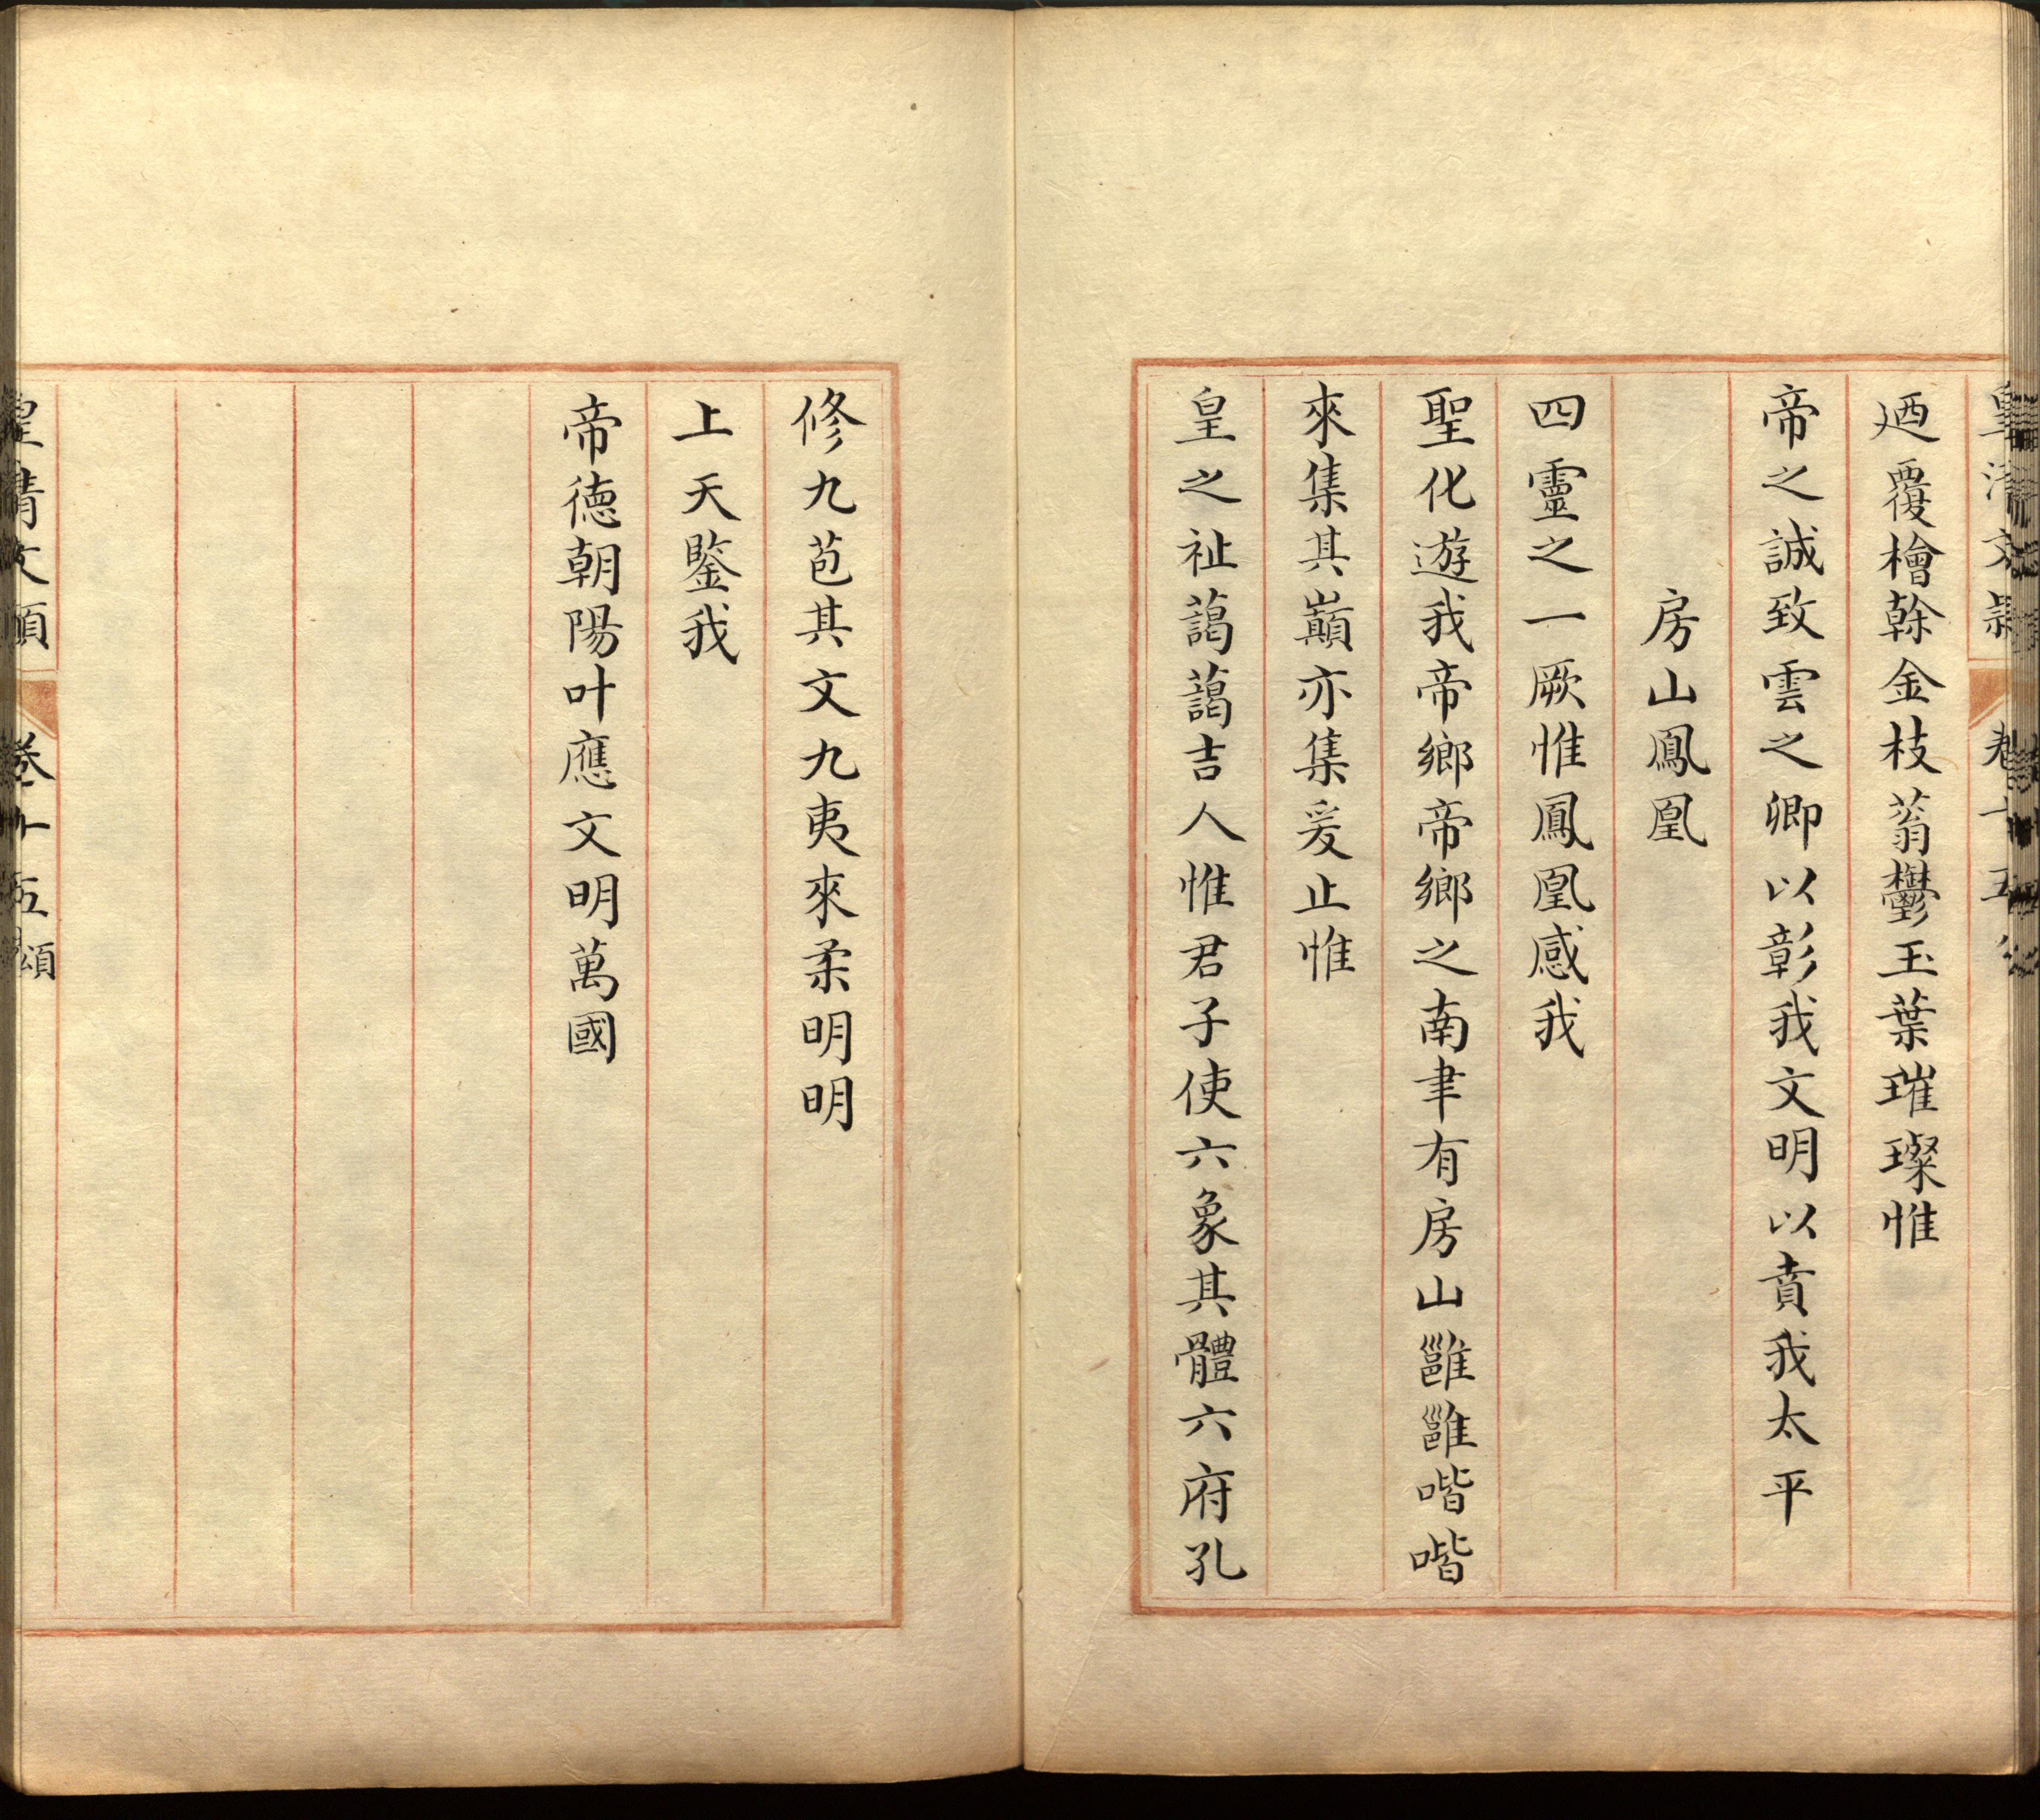 皇清文穎 卷十五
廼覆檜榦金枝蓊鬱玉葉璀璨惟
帝之誠致雲之卿以彰我文明以賁我太平
房山鳳凰
四靈之一厥惟鳳凰感我
聖化遊我帝鄉帝鄉之南聿有房山雝雝喈喈
來集其巔亦集爰止惟
皇之祉藹藹吉人惟君子使六象其體六府孔
修九苞其文九夷來柔明明
上天鑒我
帝德朝陽叶應文明萬國
皇清文穎 卷十五 頌